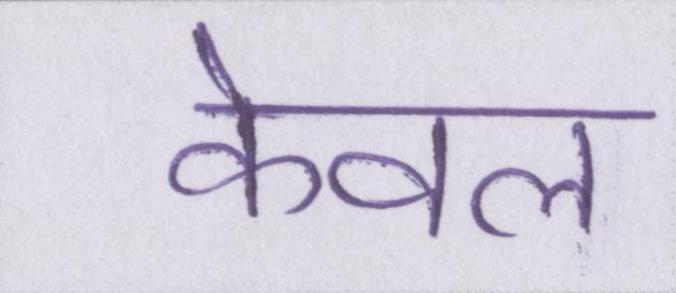 केवल